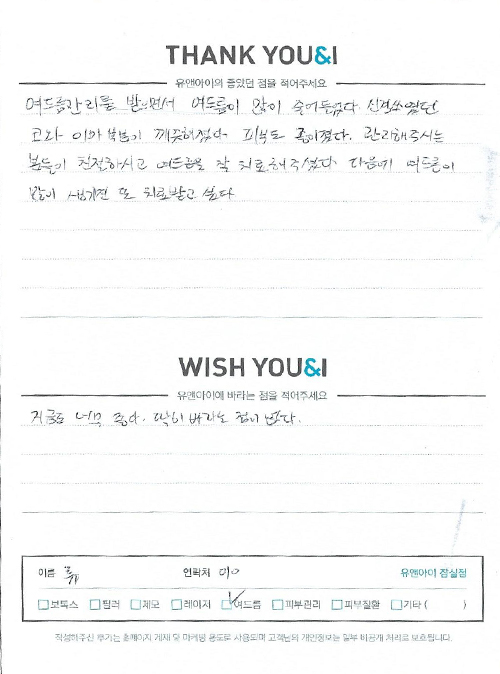 THANK YOU&I
유앤아이의 좋았던 점을 적어주세요
여드름관리를 받으면서 여드름이 많이 줄어들었다 신경쓰였던
코와 이마 부분이 깨끗해졌다 피부도 좋아졌다. 관리해주시는
분들이 친절하시고 여드름을 잘 치료해주셨다 다음에 여드름이
많이 생기면 또 치료받고 싶다
WISH YOU&I
유앤아이에 바라는 점을 적어주세요
지금도 너무 좋다. 딱히 바라는 점이 없다.
이름 연락처 010 유앤아이 잠실점
보톡스 필러 제모 레이저 여드름 피부관리 피부질환 기타 ( )
작성해주신 후기는 홈페이지 게재 및 마케팅 용도로 사용되며 고객님의 개인정보는 일부 비공개 처리로 보호됩니다.